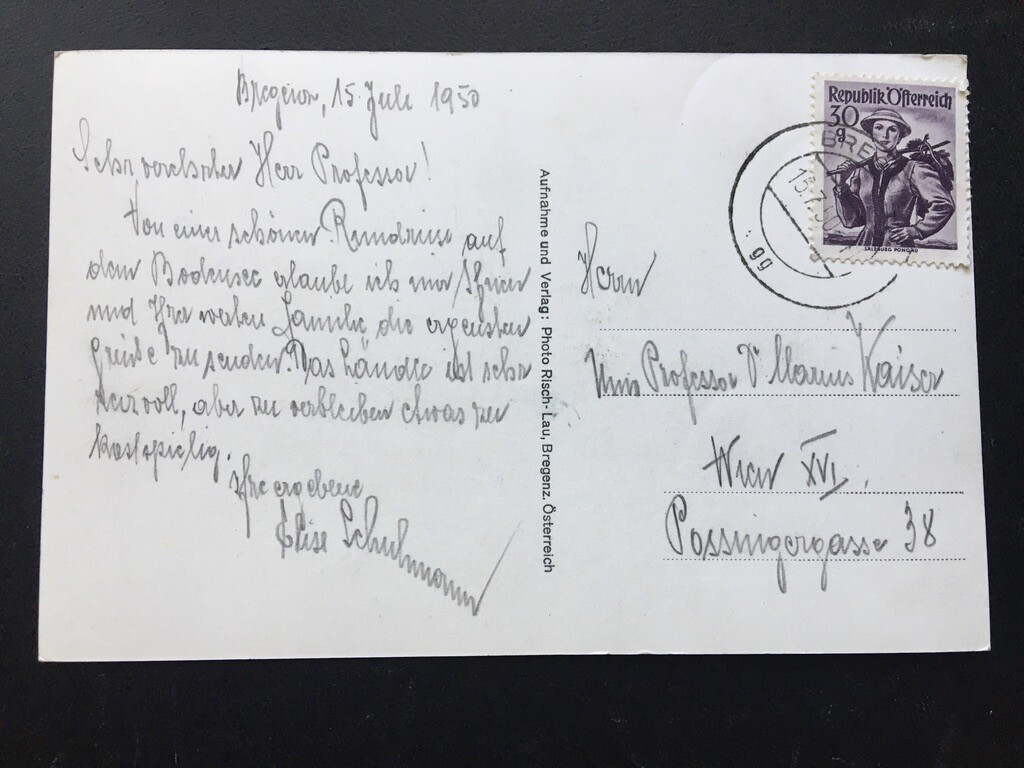 Bregenz, 15. Juli 1950
Sehr verehrter Herr Professor!
Von einer schönen Rundreise auf
dem Bodensee erlaube ich mir, Ihnen
und Ihrer werten Familie die ergebensten
Grüße zu senden. Das Ländle ist sehr
reizvoll, aber zu verbleiben etwas zu
kostspielig.
Ihre ergebene
Elise Schuhmann
Aufnahme und Verlag: Photo Risch-Lau, Bregenz. Österreich
Republik Österreich
30
g
SALZBURG PONGAU
BRE
15.
9g
Herrn
Univ Professor Dr Marius Kaiser
Wien XVI.
Possingergasse 38